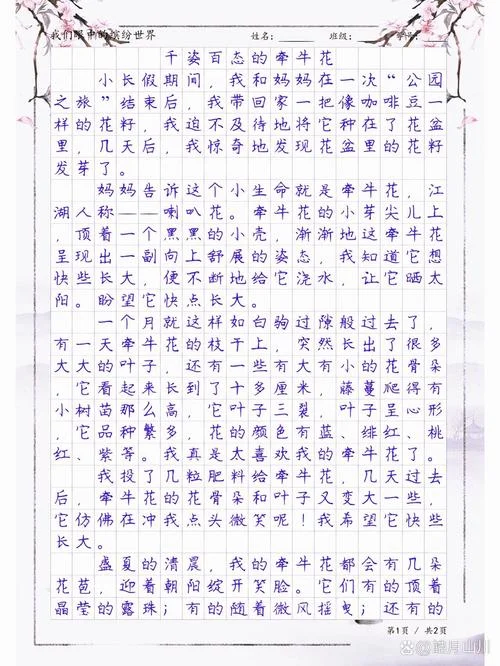 我们眼中的缤纷世界 姓名: 班级: 学号:
千姿百态的牵牛花
小长假期间，我和妈妈在一次“公园
之旅”结束后，我带回家一把像咖啡豆一
样的花籽，我迫不及待地将它种在了花盆
里，几天后，我惊奇地发现花盆里的花籽
发芽了。
妈妈告诉这个小生命就是牵牛花，江
湖人称——喇叭花。牵牛花的小芽尖儿上
，顶着一个黑黑的小壳，渐渐地这牵牛花
呈现出一副向上舒展的姿态，我知道它想
快些长大，便不断地给它浇水，让它晒太
阳。盼望它快点长大。
一个月就这样如白驹过隙般过去了，
有一天牵牛花的枝干上，突然长出了很多
大大的叶子，还有一些有大有小的花骨朵
，它看起来长到了十多厘米，藤蔓爬得有
小树苗那么高，它叶子三裂，叶子呈心形
，它品种繁多，花的颜色有蓝、绯红、桃
红、紫等。我真是太喜欢我的牵牛花了。
我投了几粒肥料给牵牛花，几天过去
后，牵牛花的花骨朵和叶子又变大一些，
它仿佛在冲我点头微笑呢！我希望它快些
长大。
盛夏的清晨，我的牵牛花都会有几朵
花苞，迎着朝阳绽开笑脸。它们有的顶着
晶莹的露珠；有的随着微风摇曳；还有的
第1页 / 共2页